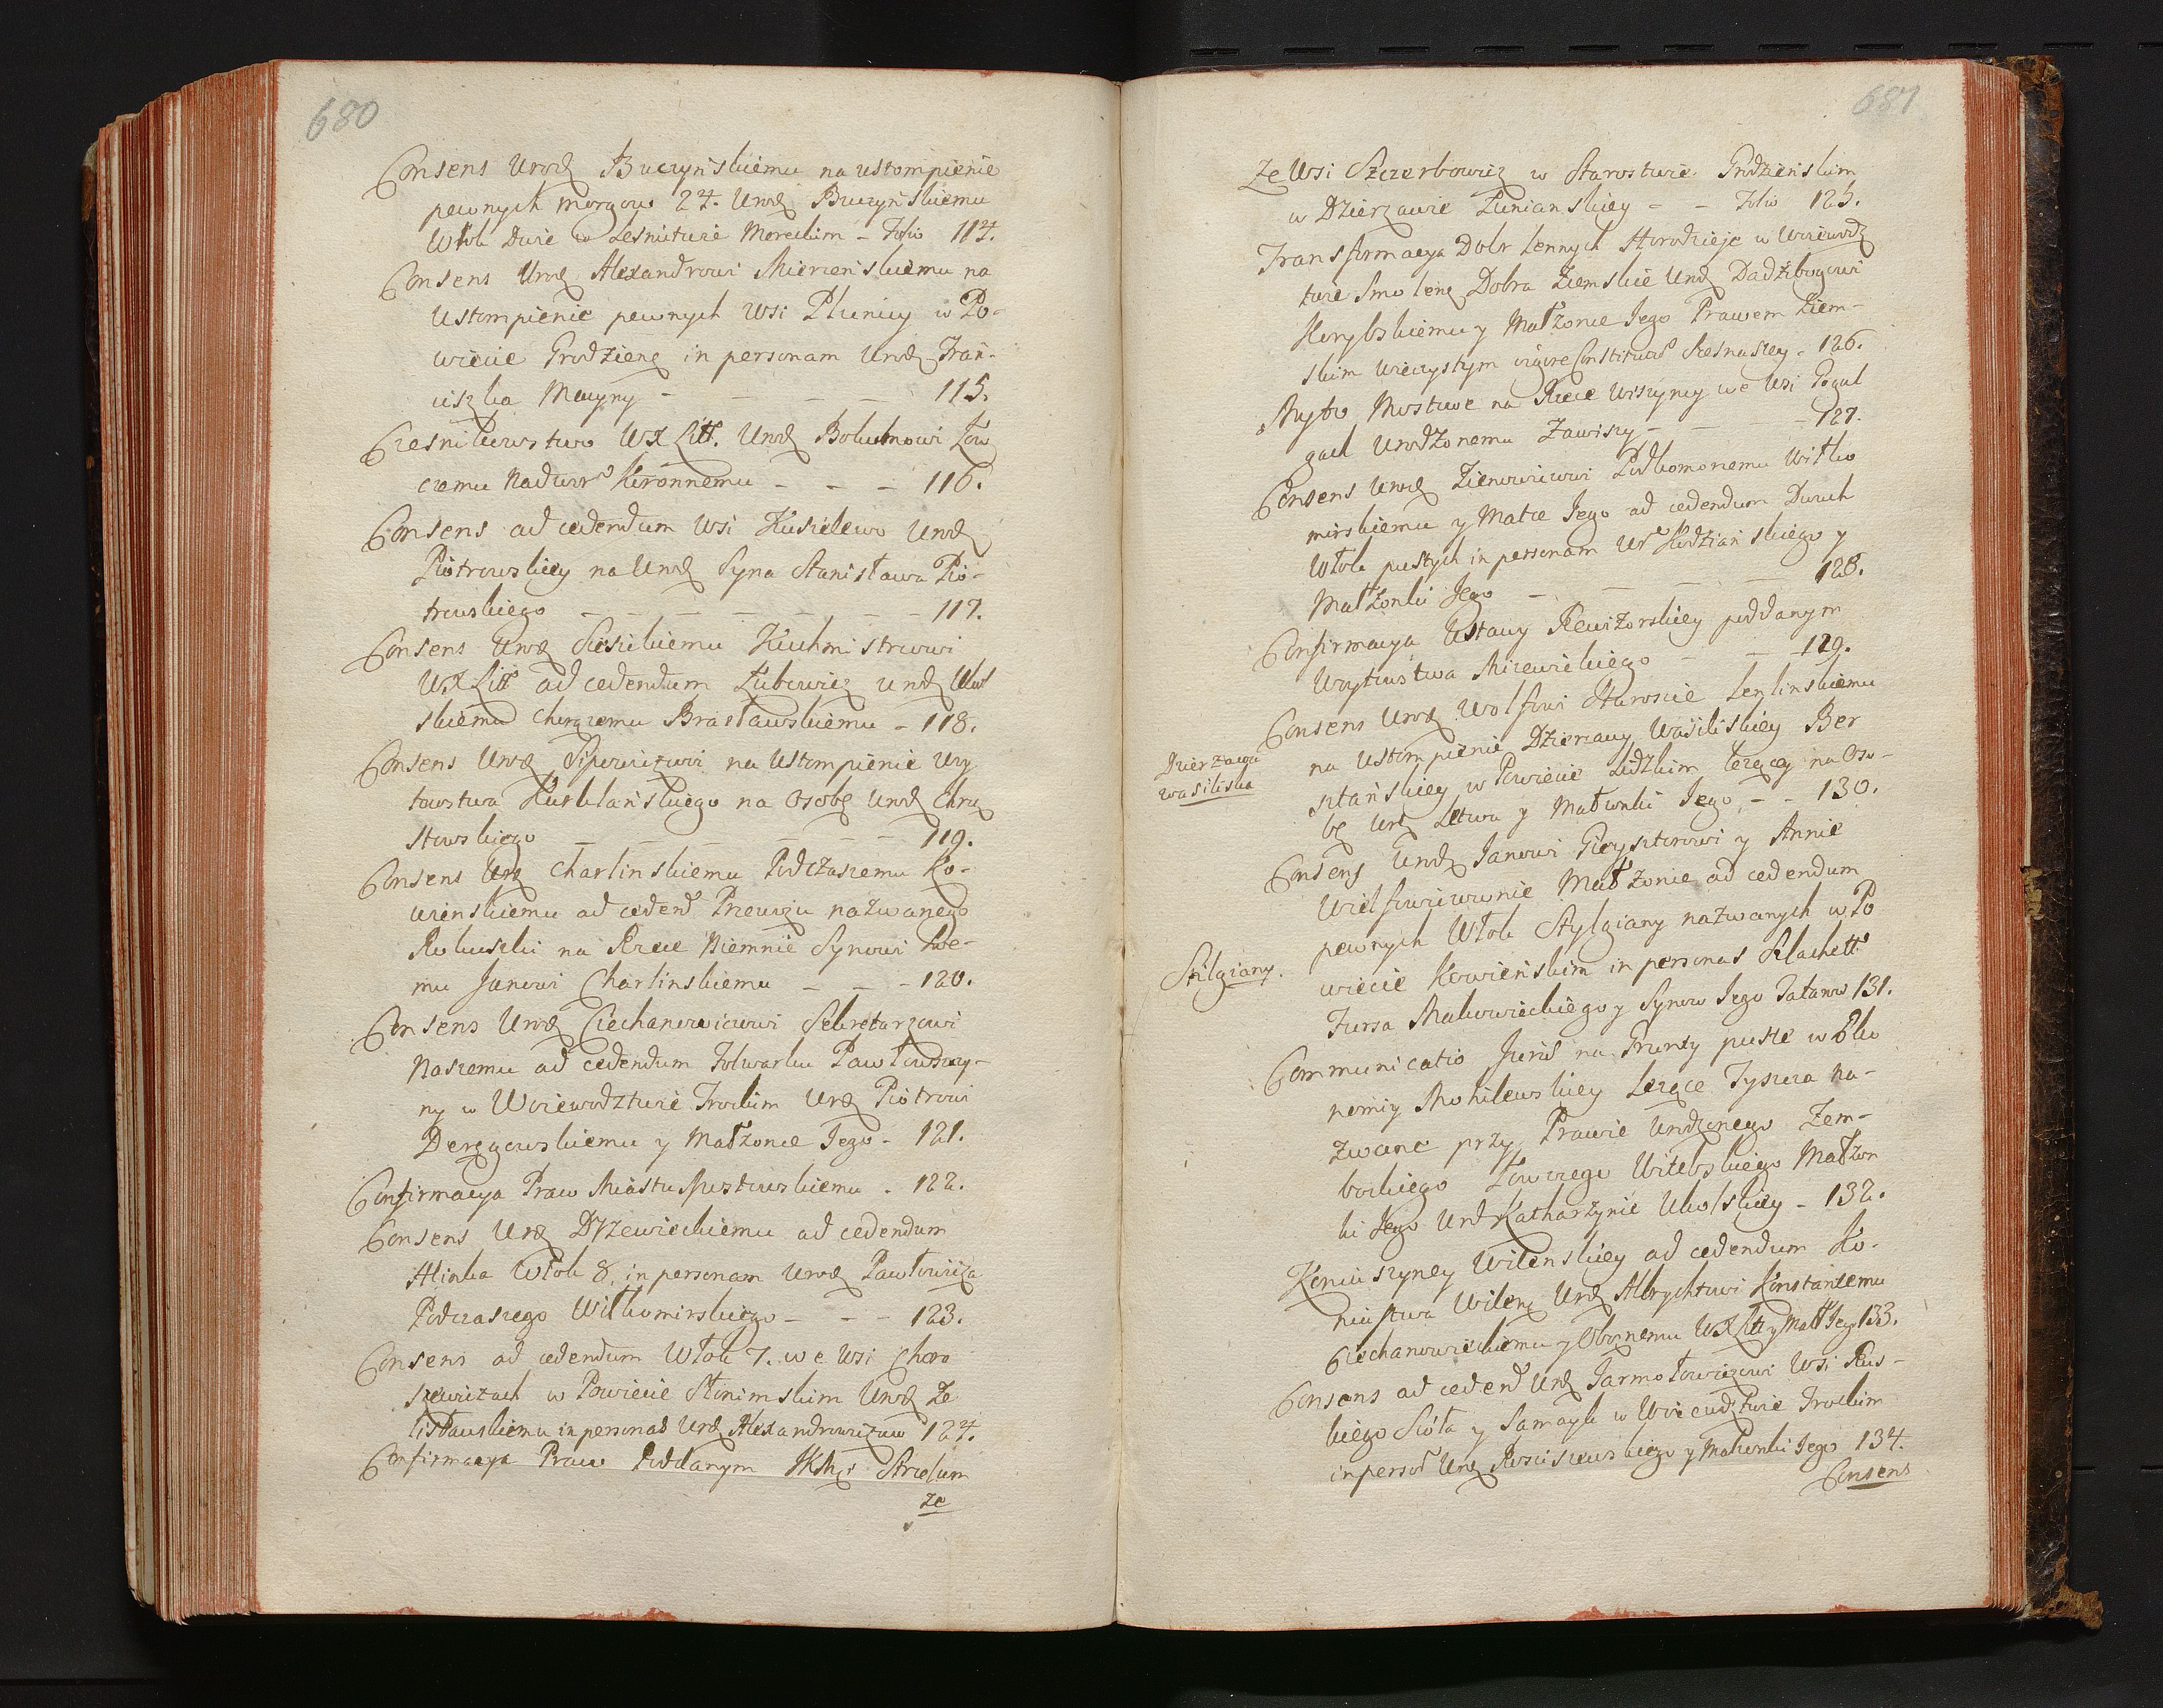 680
Consens Urodz Buczynskiemu na ustompienie
pewnych morgow 24. Urodz Buczynskiemu
Włok Dwie w Lesnictwie Mereckim - Folio 114.
Consens Urodz Alexandrowi Mierzenskiemu na
Ustompienie pewnych Wsi Plunicy w Po-
wiecie Grodzienę in personam Urodz Fran-
ciszka Meyny - - - - 115.
Czesnikowstwo WX Litt. Urodz Bokumowi Łow
czemu Nadwor Koronnemu - - - 116.
Consens ad cedendum Wsi Kusielewo Urodz
Piotrowskiey na Urodz Syna Stanisława Pio-
trowskiego - - - - - - - 117.
Consens Urodz Siesickiemu Kuchmistrzowi
WX Litt ad cedendum Łubowicz Urodz Wol
skiemu Chorążemu Brasławskiemu - 118.
Consens Urodz Sipowiczowi na Ustompienie Woy
towstwa Kurklańskiego na Osobę Urodz Chrzą
stowskiego - - - - - 119.
Consens Urę Charlinskiemu Podczaszemu Ko-
wienskiemu ad cedend Przewozu nazwanego
Rukuszki na Rzece Niemnie Synowi swe-
mu Janowi Charlinskiemu - - - 120.
Consens Urodz Ciechanowiczowi Sekretarzowi
Naszemu ad cedendum Folwarku Pawłowszczy-
ny w Woiewodztwie Trockim Urdz Piotrowi
Derżgowskiemu y Małżonce Jego - 121.
Confirmacya Praw Miastu Mustowskiemu . 122.
Consens Urdz Drzewieckiemu ad cedendum
Aliaka Włok 8. in personam Urodz Pawłowicza
Podczaszego Wiłkomirskiego - - - 123.
Consens ad cedendum Włok 7. we Wsi Choro
szewiczach w Powiecie Słonimskim Urodz Ze
lisławskiemu in personas Urdz Alexandrowiczow 124.
Confirmacya Praw Poddanym JKMci Strzelcom
ze
681
Ze Wsi Szczerbowicz w Starostwie Grodzieńskim
w Dzierzawie Łunianskiey - - Folio 125.
Transformacya Dobr Lennych Horodzieje w Woiewodz
twie Smolenę Dobra Ziemskie Urodz Dadźibogowi
Korybskiemu y Małżonce Jego Prawem Ziem-
skim wieczystym vigore Constitucyi Sześnaszey - 126.
Myto Mostowe na Rzece Wiszyncy we Wsi Pogul
gach Urodzonemu Zawiszy - - - 127.
Consens Urodz Zienowiczowi Podkomorzemu Wiłko
mirskiemu y Matce Jego ad cedendum Dwuch
Włok pustych in personam Ur Hodziańskiego y
Małżonki Jego - - - - 128.
Confirmacya Ustawy Rewizorskiey poddanym
Woytowstwa Micewickiego - - 129.
Consens Urodz Wolfowi Staroscie Lenlinskiemu
na Ustompienie Dzierzawy Wasiliskiey Ber
sztańskiey w Powiecie Lidzkim leżącey na Oso-
bę Urdz Letwa y Małżonki Jego - - 130.
Dzierzawa
Wasiliska
Consens Urodz Janowi Gieysztorowi y Annie
Wielfowiczownie Małżonce ad cedendum
pewnych Włok Stylgiany nazwanych w Po
wiecie Kowieńskim in personas Szlachett
Jurza Makowieckiego y Synow Jego Tatarow 131.
Stilgiany.
Communicatio Juris na Grunty puste w Eko
nomiy Mohilewskiey leżące Tyszcza Na-
zwane przy Prawie Urodzonego Zem-
bockiego Łowczego Witebskiego Małżon
ki Jego Urd Katharzynie Wolskiey - 132.
Koniuszyney Wilenskiey ad cedendum Ko-
niustwa Wilenę Urdz Albrychtowi Konstantemu
Ciechanowieckiemu y Oboznemu WX Litt y Małż Jego 133.
Consens ad cedend Urdz Jarmołowiczowi Wsi Rus-
kiego Sioła y Samayk w Woiewudztwie Trockim
in person Urdz Rusciszewskiego y Małżonki Jego 134.
Consens